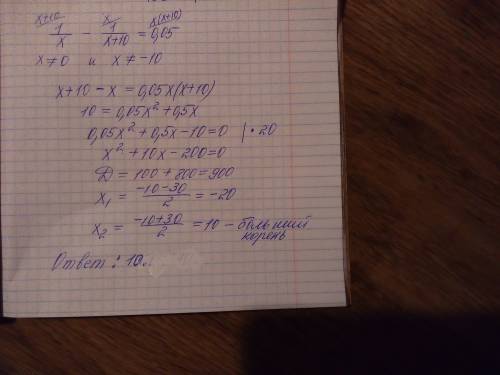 x+10 x x(x+10)
1/x - 1/(x+10) = 0,05
x≠0 и x≠-10
x+10-x = 0,05x(x+10)
10 = 0,05x²+0,5x
0,05x²+0,5x-10=0 |•20
x²+10x-200=0
D = 100+800=900
x₁ = (-10-30)/2 = -20
x₂ = (-10+30)/2 = 10 - больший корень
Ответ: 10.